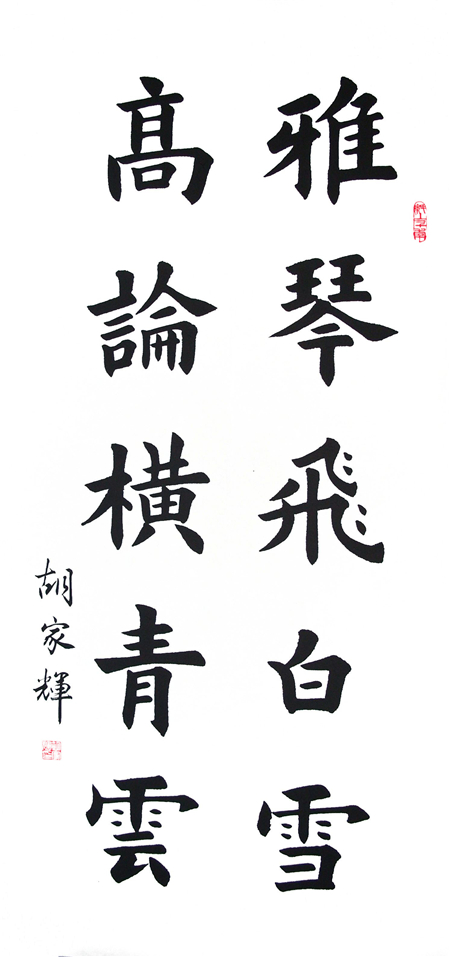 雅琴飛白雪
高論橫青雲
胡家輝